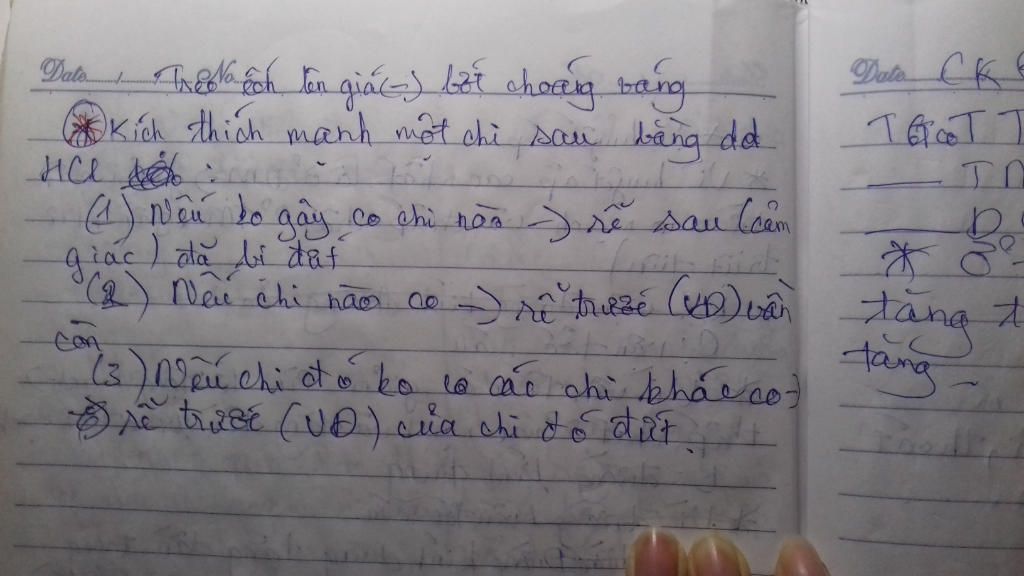 Date No
Treo ếch lên giá (→) bớt choáng váng
* Kích thích mạnh một chi sau bằng dd
HCl :
(1) Nếu ko gây co chi nào → rễ sau (cảm
giác) đã bị đứt
(2) Nếu chi nào co → rễ trước (VĐ) vẫn
còn
(3) Nếu chi đó ko co các chi khác co →
rễ trước (VĐ) của chi đó đứt.
Date CK
T
T
D
*
tăng t
tăng